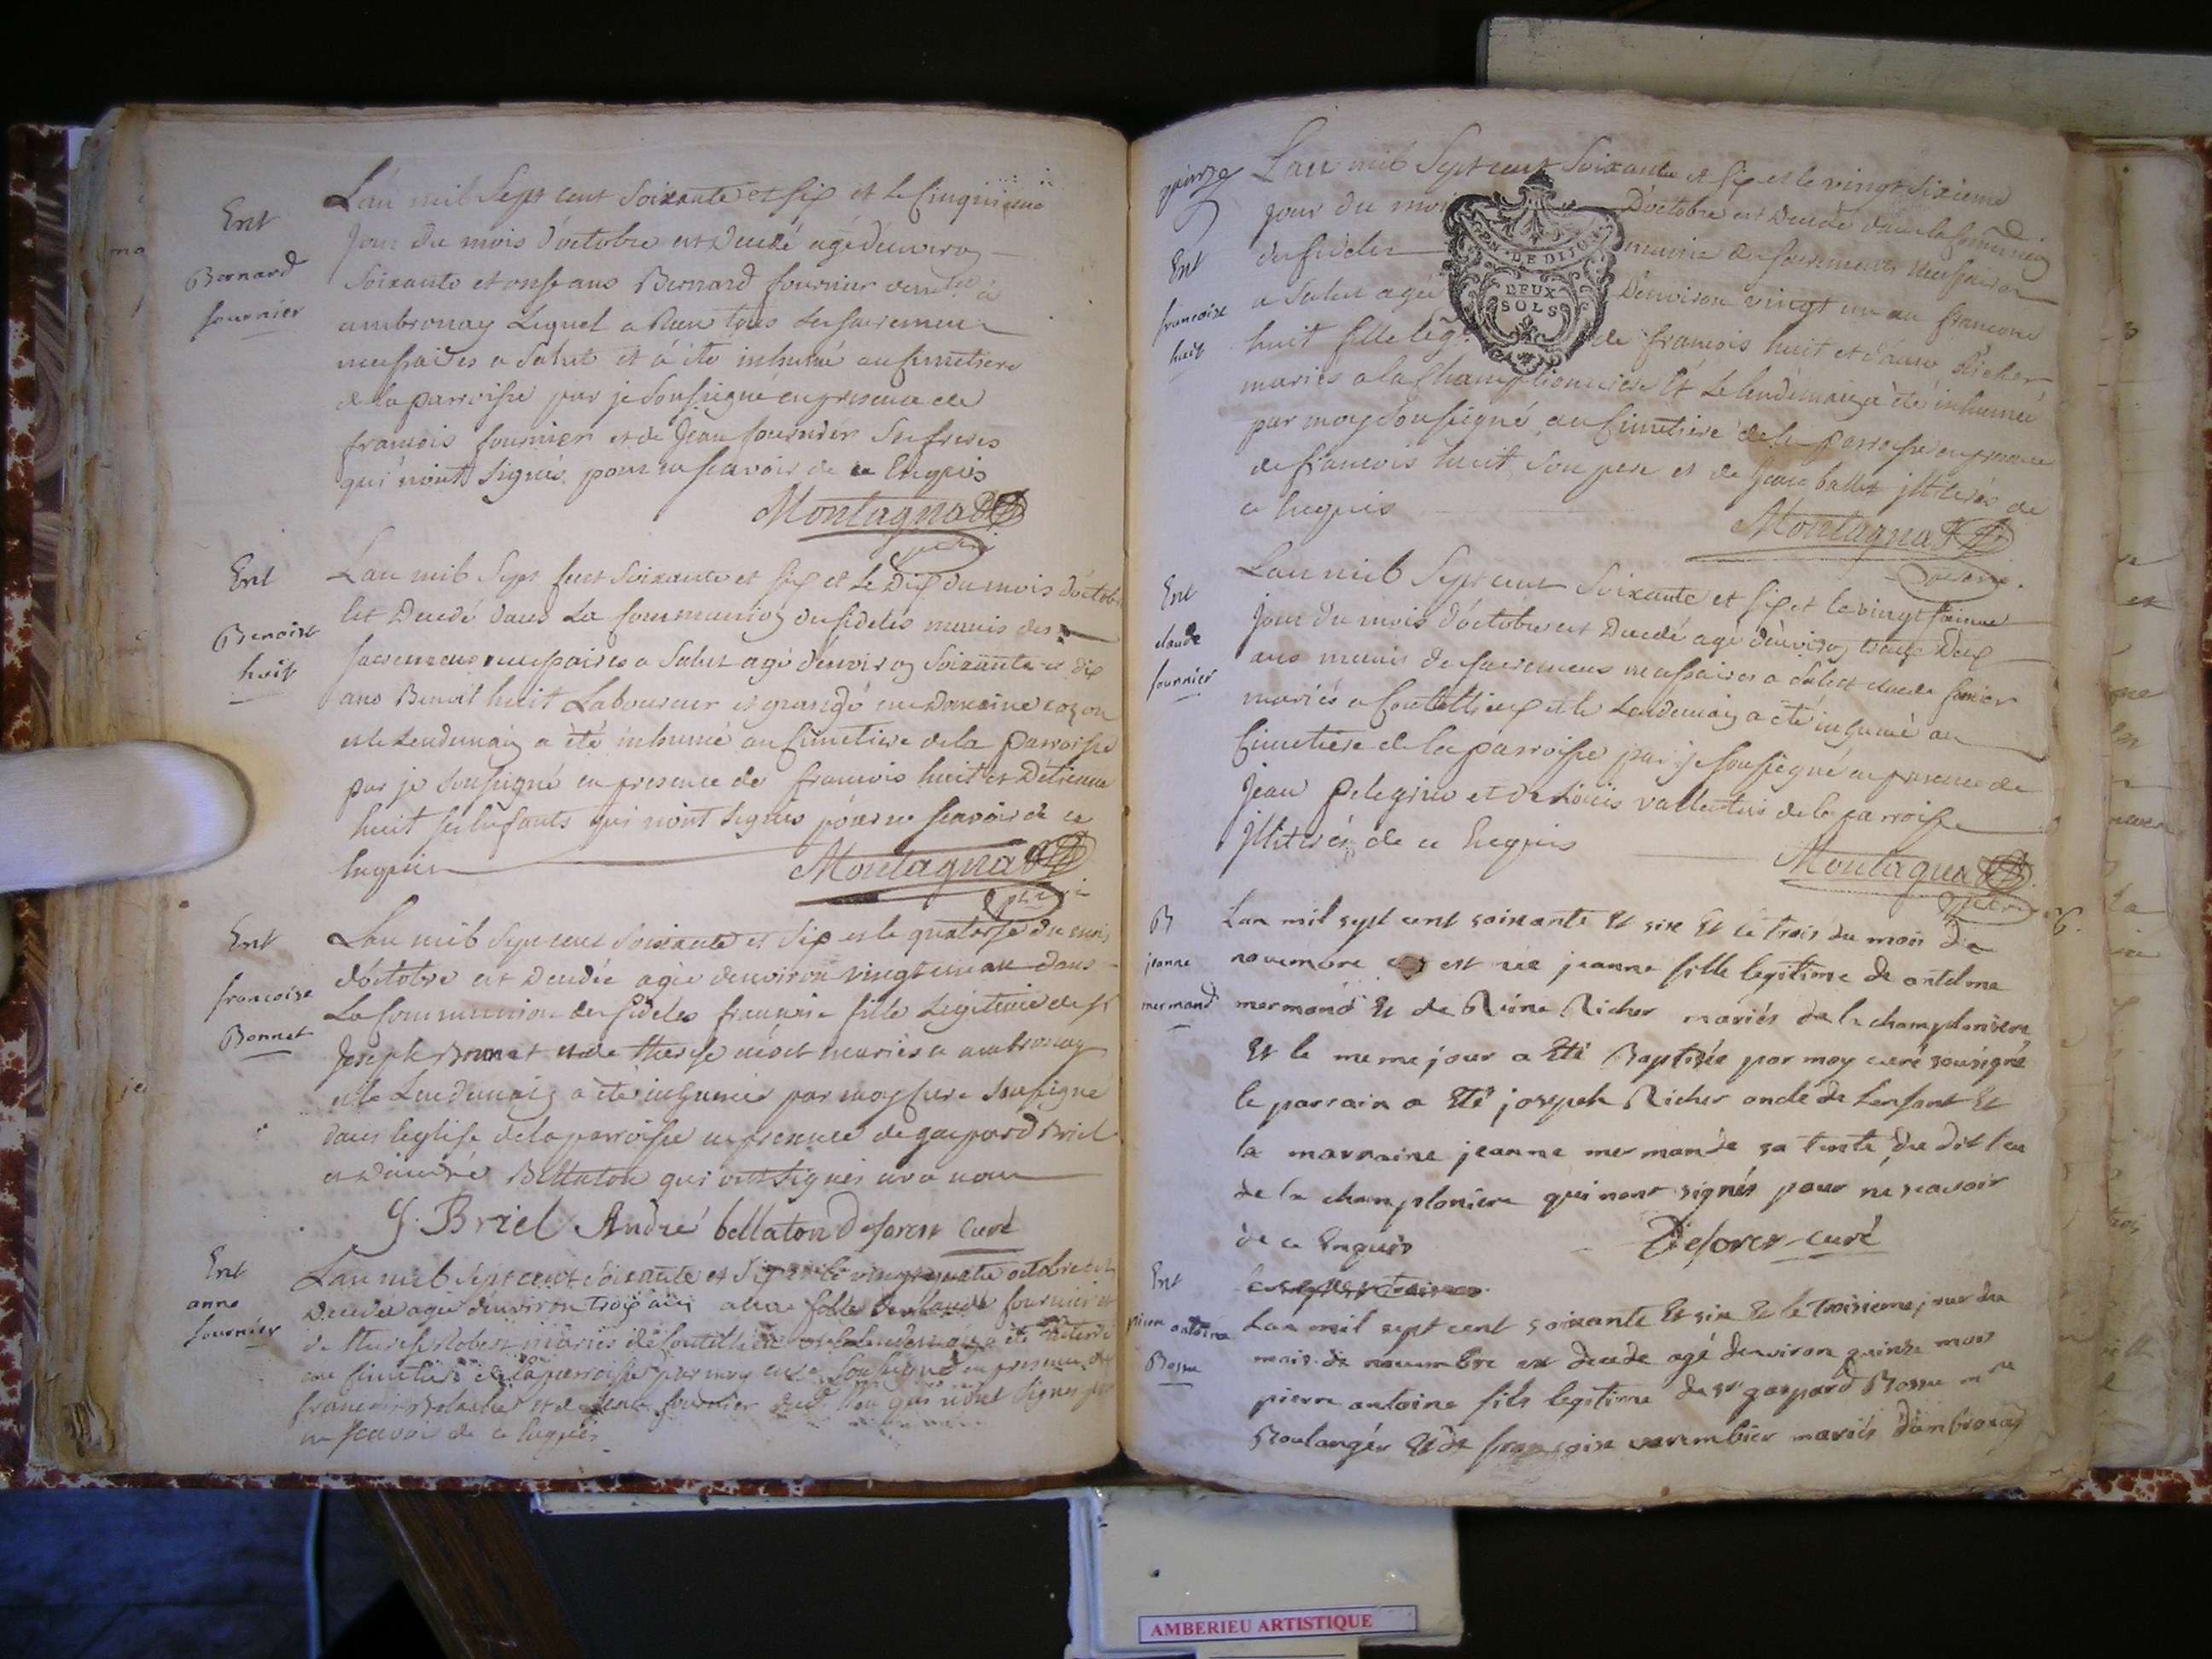 Ent
Bernard
fournier
Lan mil Sept cent Soixante et six et le Cinquieme
Jour du mois d'octobre est Decedé agé d'environ
Soixante et onse ans Bernard fournier
ambronay Lequel a Recu tous les sacremens
necessaires a Salut et a été inhumé au Cimetiere
de la parroisse par je Soussigné en presence de
francois fournier et de Jean fournier Ses freres
qui n'ont Signés pour ne scavoir de ce Enquis
Montagnat
Ent
Benoist
huit
Lan mil Sept Cent Soixante et six et le Dix du mois d'octobre
Est Decedé dans La Communion des fideles munis des
sacremens necessaires a Salut agé d'environ Soixante et dix
ans Benoit huit Laboureur et grangé
et le Lendemain a été inhumé au Cimetiere de la parroisse
par je Soussigné en presence de francois huit et D'étienne
huit ses Enfants qui n'ont signés pour ne scavoir de ce
Enquis
Montagnat
Ent
francoise
Bonnet
Lan mil Sept cent Soixante et Six et le quatorse du mois
d'octobre est Decedée agée d'environ vingt un an dans
La Communion des fideles francoise fille Legitime de sr
Joseph Bonnet et de therese mariés a ambronay
et le Lendemain a été inhumée par moy Curé Soussigné
dans l'eglise de la parroisse en presence de gaspard Briel
et D'andré Bellaton qui ont Signés avec nous
G. Briel André bellaton Deforest Curé
Ent
anne
fournier
Lan mil Sept cent Soixante et Six et le vingt quatre octobre est
Decedée agée d'environ trois ans anne fille de Claude fournier et
de therese Robert mariés de Coutelliéu et le Lendemain a été enterrée
au Cimetiere de la parroisse par moy curé Soussigné en presence de
francois et de Jean fournier dud. lieu qui n'ont Signés pr
ne scavoir de ce Enquis
quinze
Ent
francoise
huit
Lan mil Sept cent Soixante et six et le vingt Sixieme
jour du mois D'octobre est Decedé dans la Communion
des fideles munie des sacremens necessaires
a Salut agée D'environ vingt un an francoise
huit fille leg. de francois huit et d'anne Richer
mariés a la Champlionniere Et Le lendemain a été inhumée
par moy Soussigné au Cimetiere de la parroisse en presence
de francois huit Son pere et de Jean ballet illiterés de
ce Enquis
EN DE DIJON
DEUX
SOLS
Montagnat
Ent
claude
fournier
Lan mil Sept cent Soixante et six et le vingt
Jour du mois d'octobre est Decedé agé d'environ
ans munis de sacremens necessaires a Salut claude
mariés a Coutelliéu et le Lendemain a été inhumé au
Cimetiere de la parroisse par je soussigné en presence de
Jean pelegrin et de Loüis de la parroisse
illiterés de ce Enquis
Montagnat
B
jeanne
mermand
Lan mil sept cent soixante Et six Et le trois du mois de
novembre est née jeanne fille legitime de antelme
mermand Et de Reine Richer mariés de la champloniere
Et le meme jour a Eté Baptisée par moy curé sousigné
le parrain a Eté joseph Richer oncle de Lenfant Et
la marraine jeanne mermande sa tante du dit lieu
de la champloniere qui nont signés pour ne scavoir
de ce Enquis
Deforest curé
Ent
pierre antoine
Bosse
Lan mil sept cent soixante Et six Et le troisieme jour du
mois de novembre est decede agé denviron quinze mois
pierre antoine fils legitime de sr gaspard Bosse mre
Boulangér Et de françoise varembier mariés dambronay
AMBERIEU ARTISTIQUE